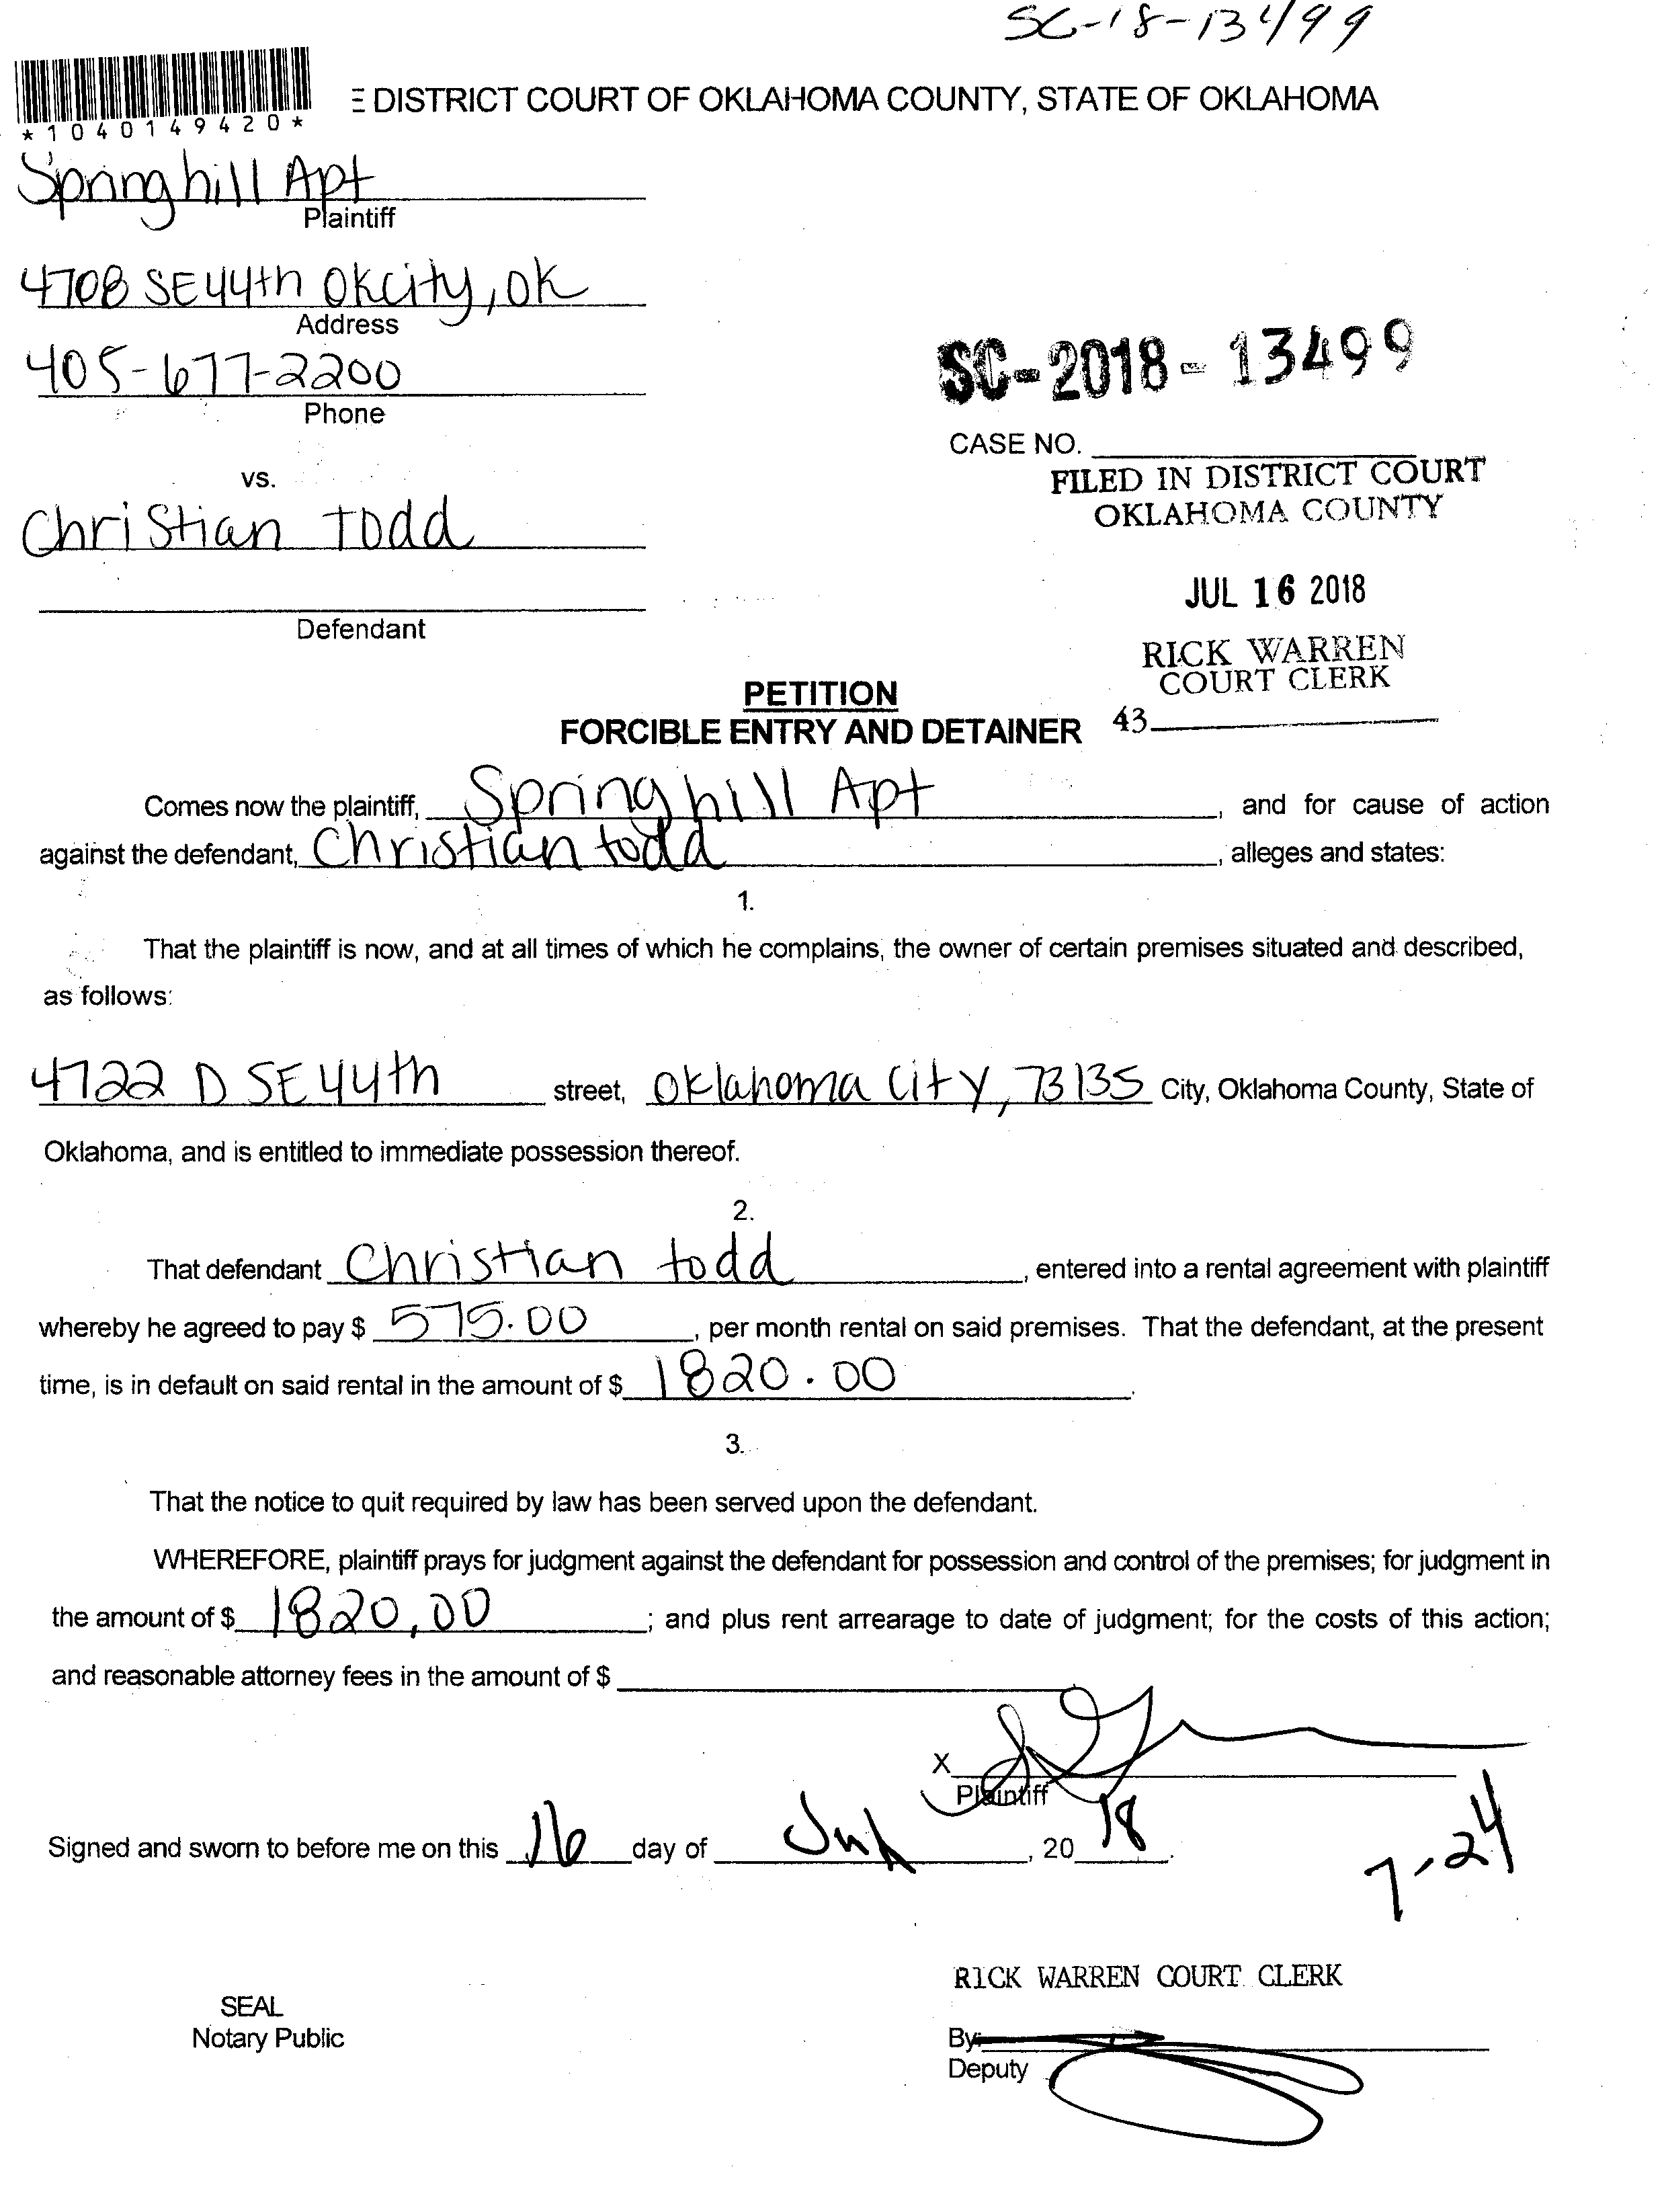 SC-18-13499
*1040149420*
E DISTRICT COURT OF OKLAHOMA COUNTY, STATE OF OKLAHOMA
Springhill Apt
Plaintiff
4708 SE 44th Okcity, OK
Address
405-677-2200
Phone
SC-2018-13499
CASE NO.
vs.
FILED IN DISTRICT COURT
OKLAHOMA COUNTY
Christian Todd
JUL 16 2018
Defendant
RICK WARREN
COURT CLERK
43
PETITION
FORCIBLE ENTRY AND DETAINER
Comes now the plaintiff, Springhill Apt, and for cause of action
against the defendant, Christian todd, alleges and states:
1.
That the plaintiff is now, and at all times of which he complains, the owner of certain premises situated and described,
as follows:
4722 D SE 44th street, Oklahoma City, 73135 City, Oklahoma County, State of
Oklahoma, and is entitled to immediate possession thereof.
2.
That defendant Christian todd, entered into a rental agreement with plaintiff
whereby he agreed to pay $ 575.00, per month rental on said premises. That the defendant, at the present
time, is in default on said rental in the amount of $ 1820.00.
3.
That the notice to quit required by law has been served upon the defendant.
WHEREFORE, plaintiff prays for judgment against the defendant for possession and control of the premises; for judgment in
the amount of $ 1820,00; and plus rent arrearage to date of judgment; for the costs of this action;
and reasonable attorney fees in the amount of $
X
Plaintiff
Signed and sworn to before me on this 16 day of July, 20 18.
7-24
RICK WARREN COURT CLERK
SEAL
Notary Public
By:
Deputy